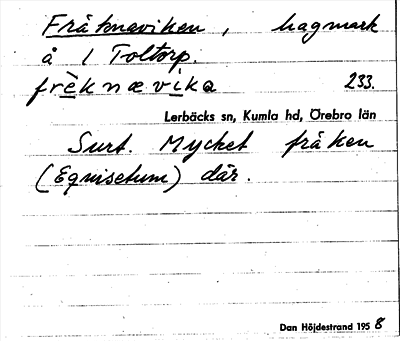 Fräknaviken, hagmark
å 1 Toltorp.
frèknævika 233.
Lerbäcks sn, Kumla hd, Örebro län
Surt. Mycket fräken
(Equisetum) där.
Dan Höjdestrand 1958